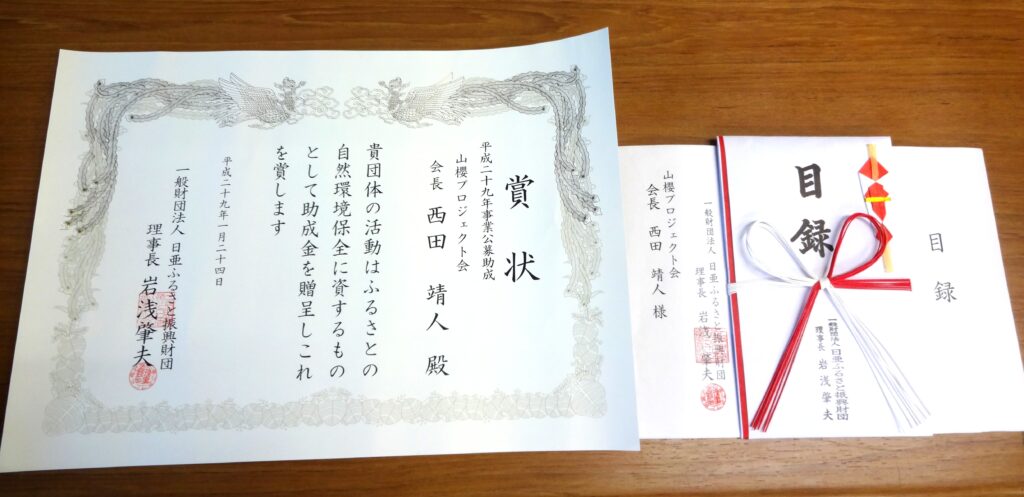 賞状
平成二十九年事業公募助成
山櫻プロジェクト会
会長 西田 靖人 殿
貴団体の活動はふるさとの
自然環境保全に資するもの
として助成金を贈呈しこれ
を賞します
平成二十九年一月二十四日
一般財団法人 日亜ふるさと振興財団
理事長 岩浅肇夫
目録
山櫻プロジェクト会
会長 西田 靖人 様
一般財団法人 日亜ふるさと振興財団
理事長 岩浅肇夫
目録
一般財団法人 日亜ふるさと振興財団
理事長 岩浅肇夫